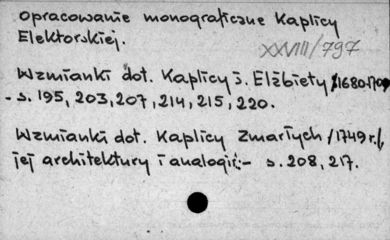 opracowanie monograficzne Kaplicy
Elektorskiej.
XXVIII/797
Wzmianki dot. Kaplicy ś. Elżbiety /1680-1700/
- s. 195, 203, 207, 214, 215, 220.
Wzmianki dot. Kaplicy Zmarłych /1749 r./,
jej architektury i analogii:- s. 208, 217.